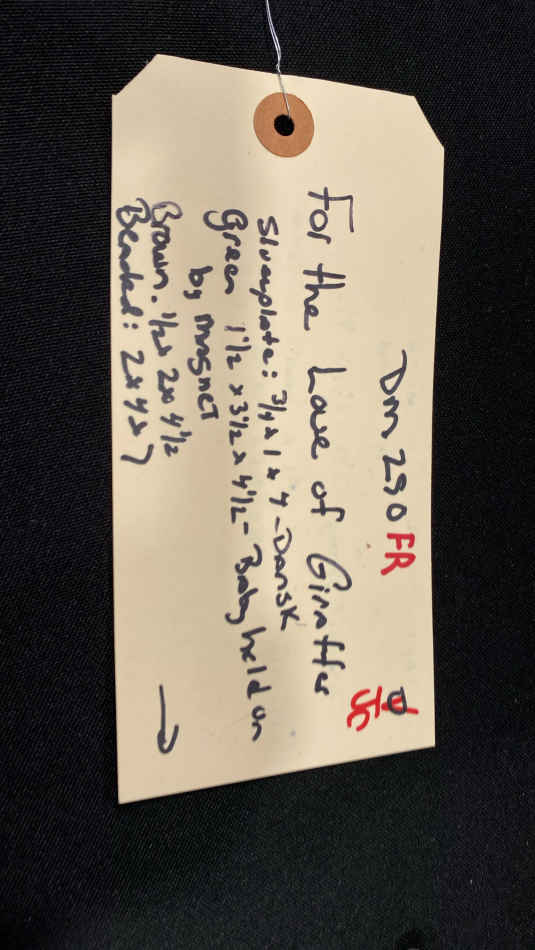 DM 290 FR
JC
For the Love of Giraffes
Silverplate: 3/4 x 1 x 4 - Dansk
Green 1 1/2 x 3 1/2 x 4 1/2 - Baby held on
by magnet
Brown. 1/2 x 2 x 4 1/2
Beaded: 2 x 4 x 7